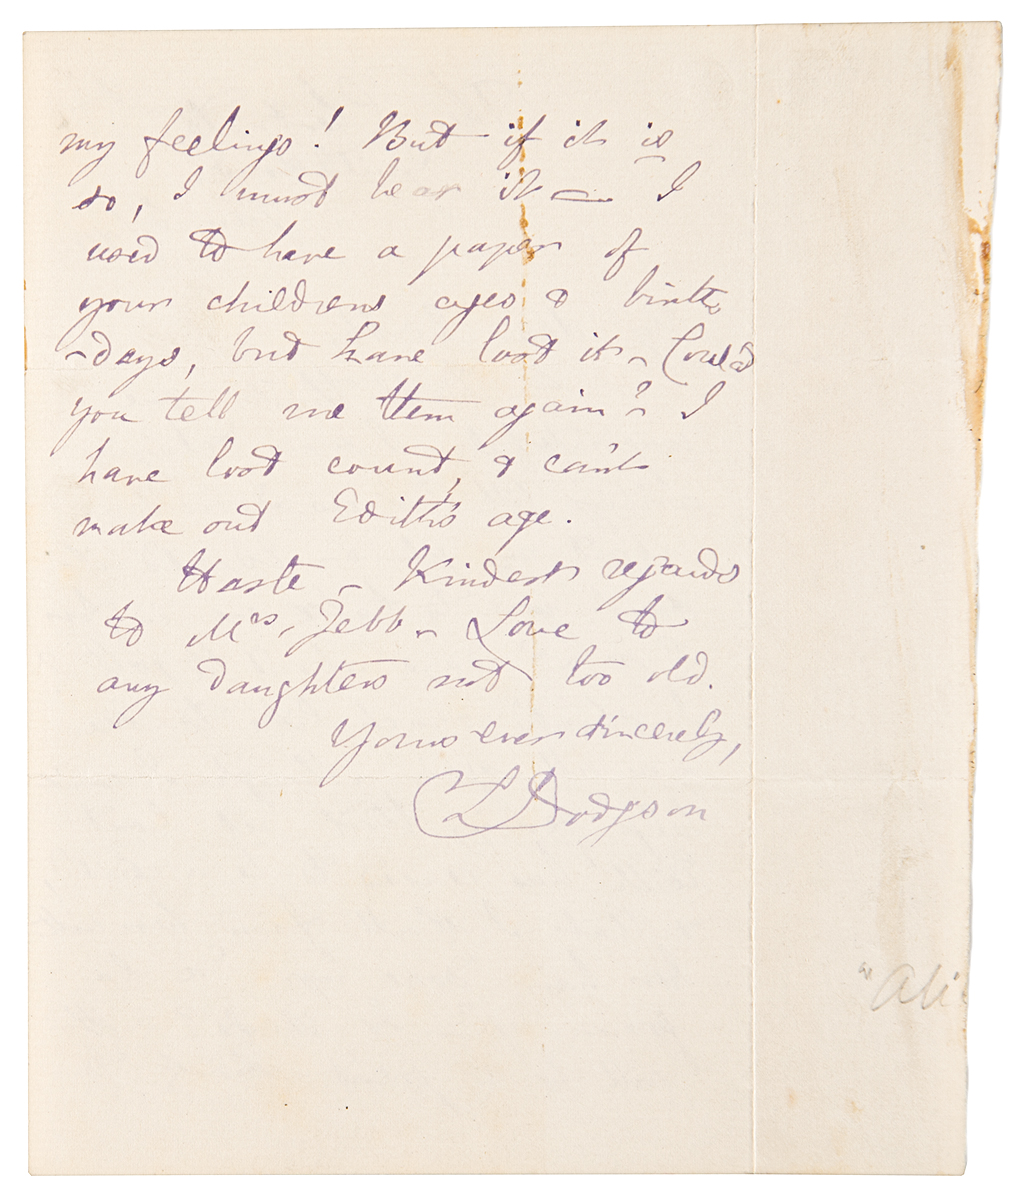 my feelings! But if it is
so, I must bear it — I
used to have a paper of
your childrens ages & birth
-days, but have lost it – Could
you tell me them again? – I
have lost count, & can't
make out Edith's age.
Haste – Kindest regards
to Mrs. Jebb – Love to
any daughters not too old.
Yours ever sincerely,
CLDodgson
"Ali